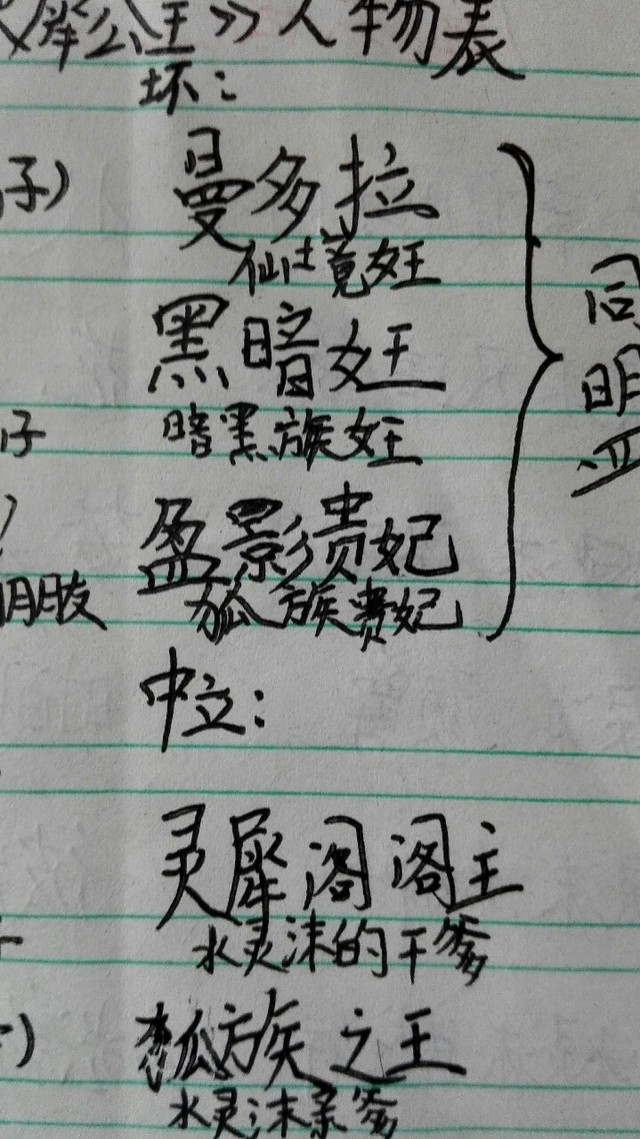 犀公主》人物表
坏:
子)
曼多拉
仙境女王
黑暗女王
暗黑族女王
仔
盈影贵妃
狐族贵妃
中立:
灵犀阁阁主
水灵沫的干爹
狐族之王
水灵沫亲爹
同
明